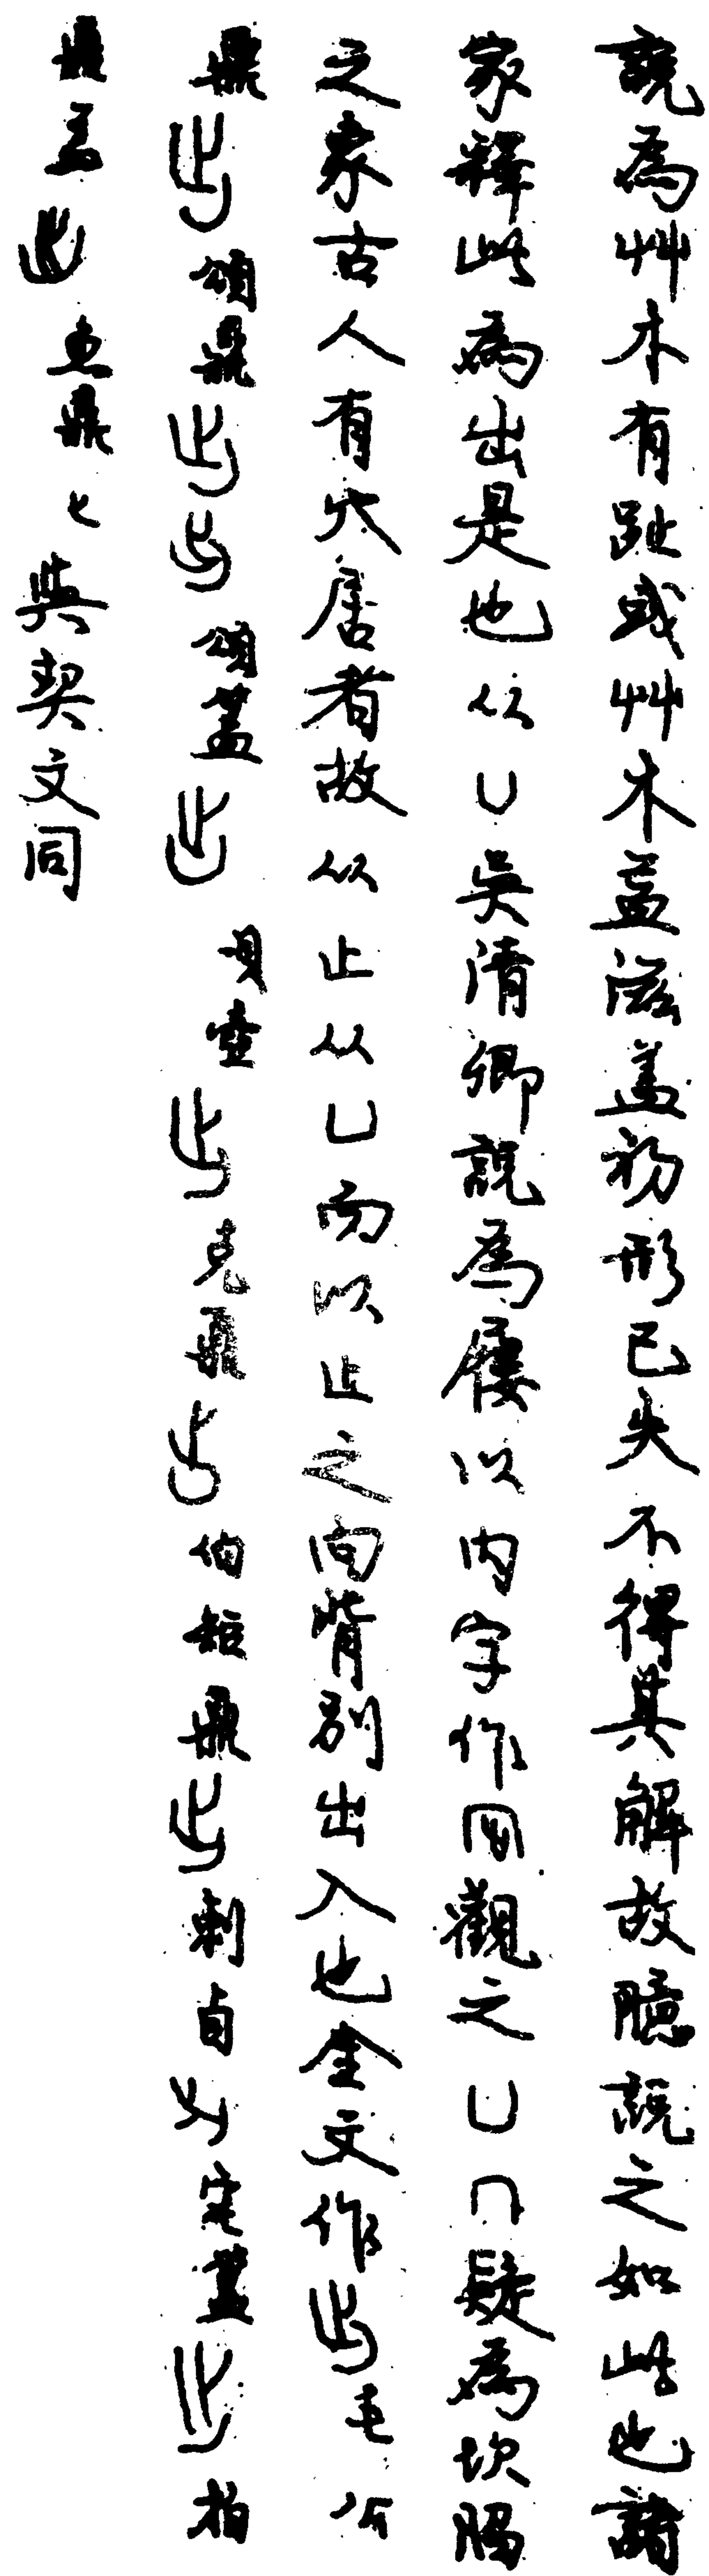 說為艸木有趾或艸木益滋蓋初形已失不得其解故臆說之如此也諸
家釋此為出是也从凵吳清卿說為屨以內字作𡇒觀之凵冂疑為坎陷
之象古人有穴居者故从止从凵而以止之向背別出入也金文作毛公
鼎頌鼎頌蓋壺克鼎伯矩鼎剌鼎宅簋
鼎盂魚鼎匕與契文同